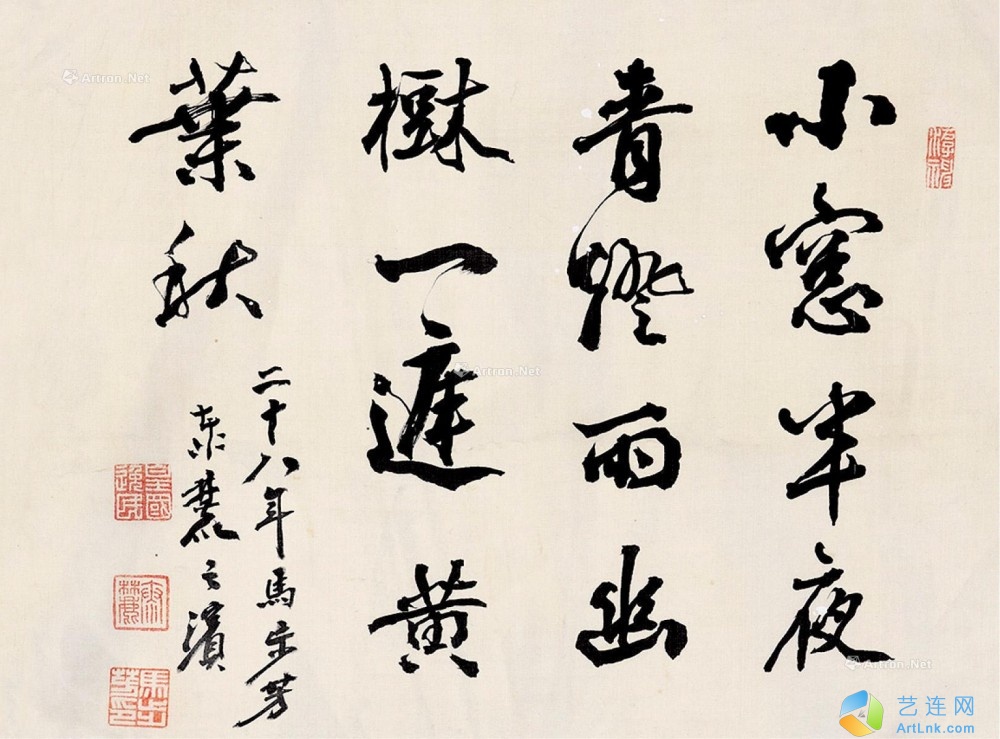 小窻半夜
青燈雨幽
樹一庭黃
葉秋
二十八年馬步芳
麓之濱
馬步芳印
Artron.Net
Artron.Net
Artron.Net
艺连网
ArtLnk.com